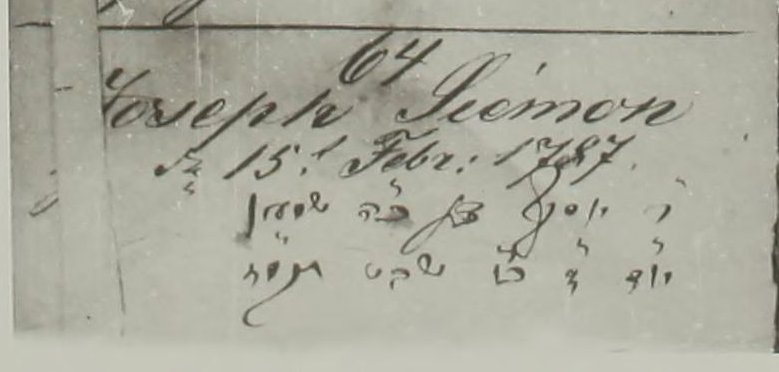 64
Joseph Siemon
15.t Febr: 1787.
ר יוסף בן כ״ה שמעון
כ״ז שבט תקמ״ז